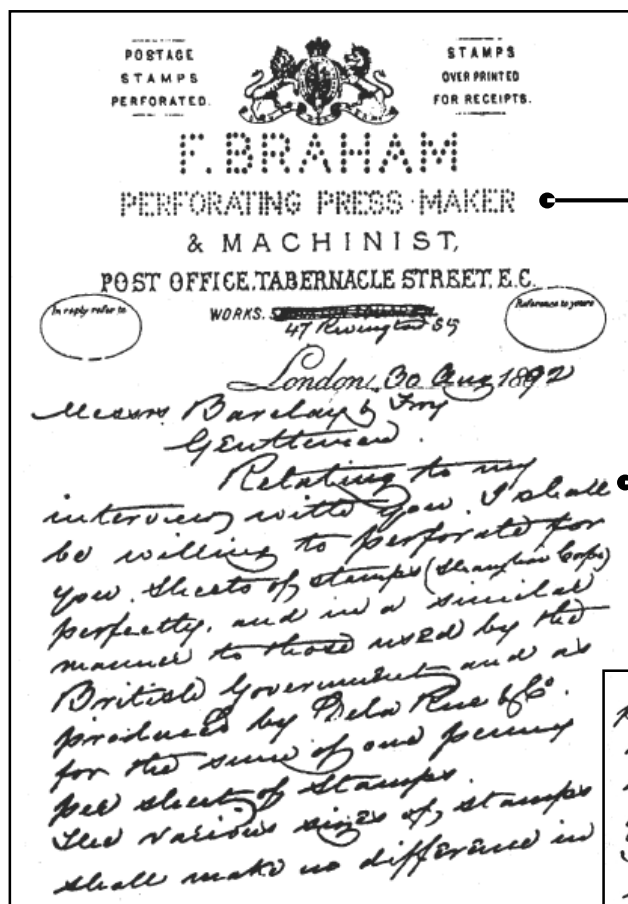 POSTAGE
STAMPS
PERFORATED.
STAMPS
OVERPRINTED
FOR RECEIPTS.
F. BRAHAM
PERFORATING PRESS-MAKER
& MACHINIST,
POST OFFICE, TABERNACLE STREET, E.C.
In reply refer to
WORKS.
47 Rivington St
Reference to yours
London, 30 Aug 1892
Messrs Barclay & Fry
Gentlemen.
Relating to my
interview with you. I shall
be willing to perforate for
you. Sheets of stamps
perfectly. and in a similar
manner to those used by the
British Government and as
produced by Dela Rue & Co.
for the sum of one penny
per sheet of Stamps.
The various sizes of, stamps
shall make no difference in